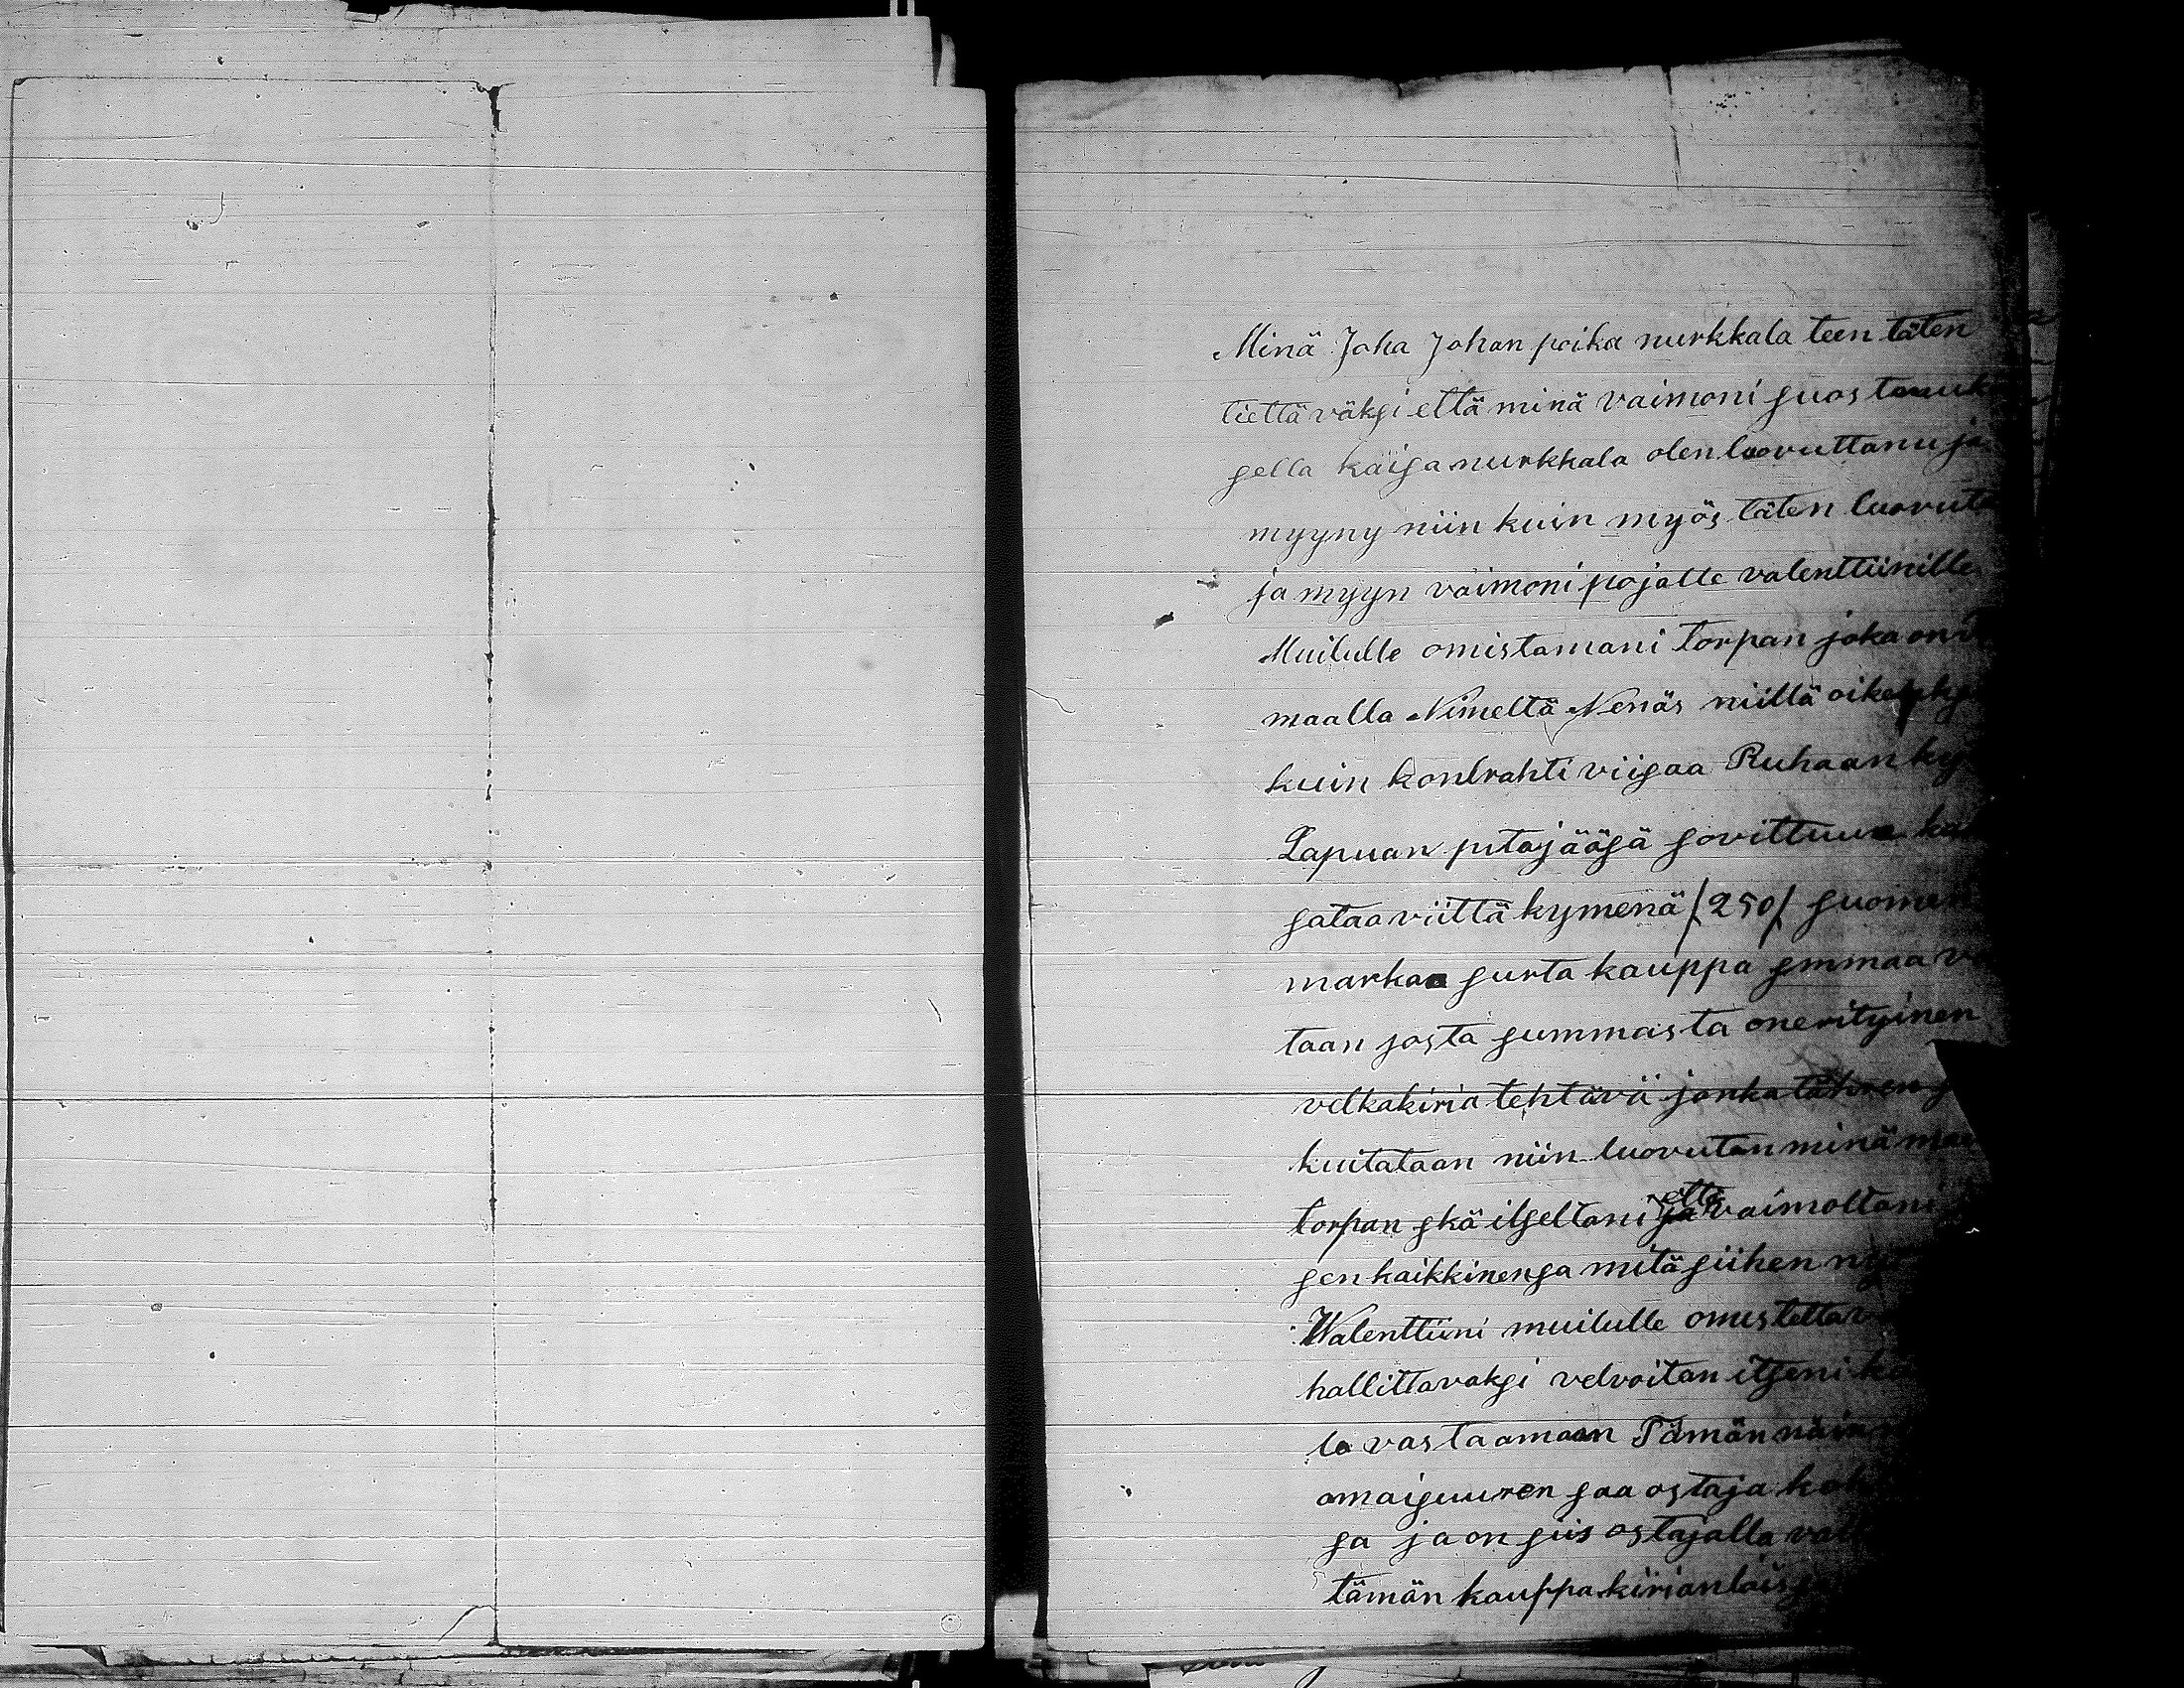 Minä Joha Johan poika nurkkala teen täten
tiettäväksi että minä vaimoni suostumuk
sella kaisa nurkkala olen luovuttanu ja
myyny niin kuin myös täten luovut
ja myyn vaimoni pojalle valenttiinille
Muilulle omistamani torpan joka on
maalla Nimeltä Nenäs niillä
kuin kontrahti viisaa Ruhaan ky
Lapuan pitäjääsä sovittuva
sataa viittä kymenä /250/ suomen
markaa surta kauppa smmaa
taan josta summasta onerityinen
velkakiria tehtävä jonka
kuitataan niin luovutan minä
torpan skä itseltani että vaimoltani
sen kaikkinensa mitä siihen
Walenttiini muilulle omistettav
hallittavaksi velvoitan itseni
la vastaamaan Tämän näin
omaisuuren saa ostaja
sa ja on siis ostajalla
tämän kauppa kirian